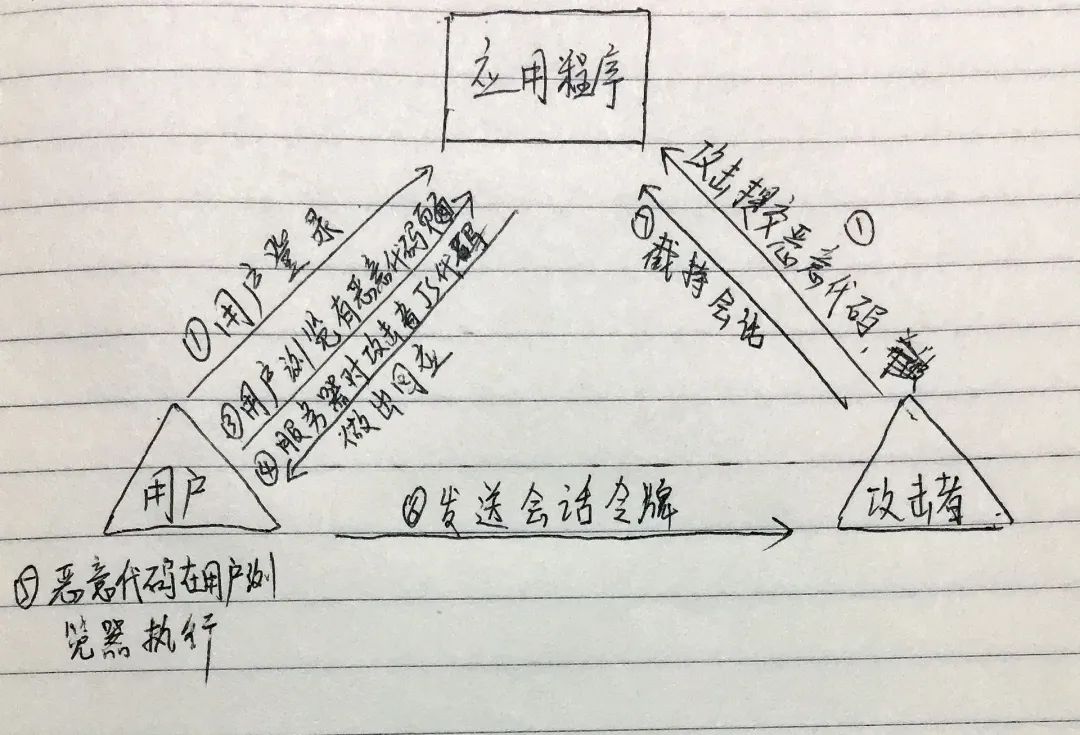 应用程序
①用户登录
③用户浏览有恶意代码页面
④服务器对攻击者JS代码
做出回应
攻击提交恶意代码,
①
⑦截持会话
用户
⑥发送会话令牌
攻击者
⑤恶意代码在用户浏
览器执行